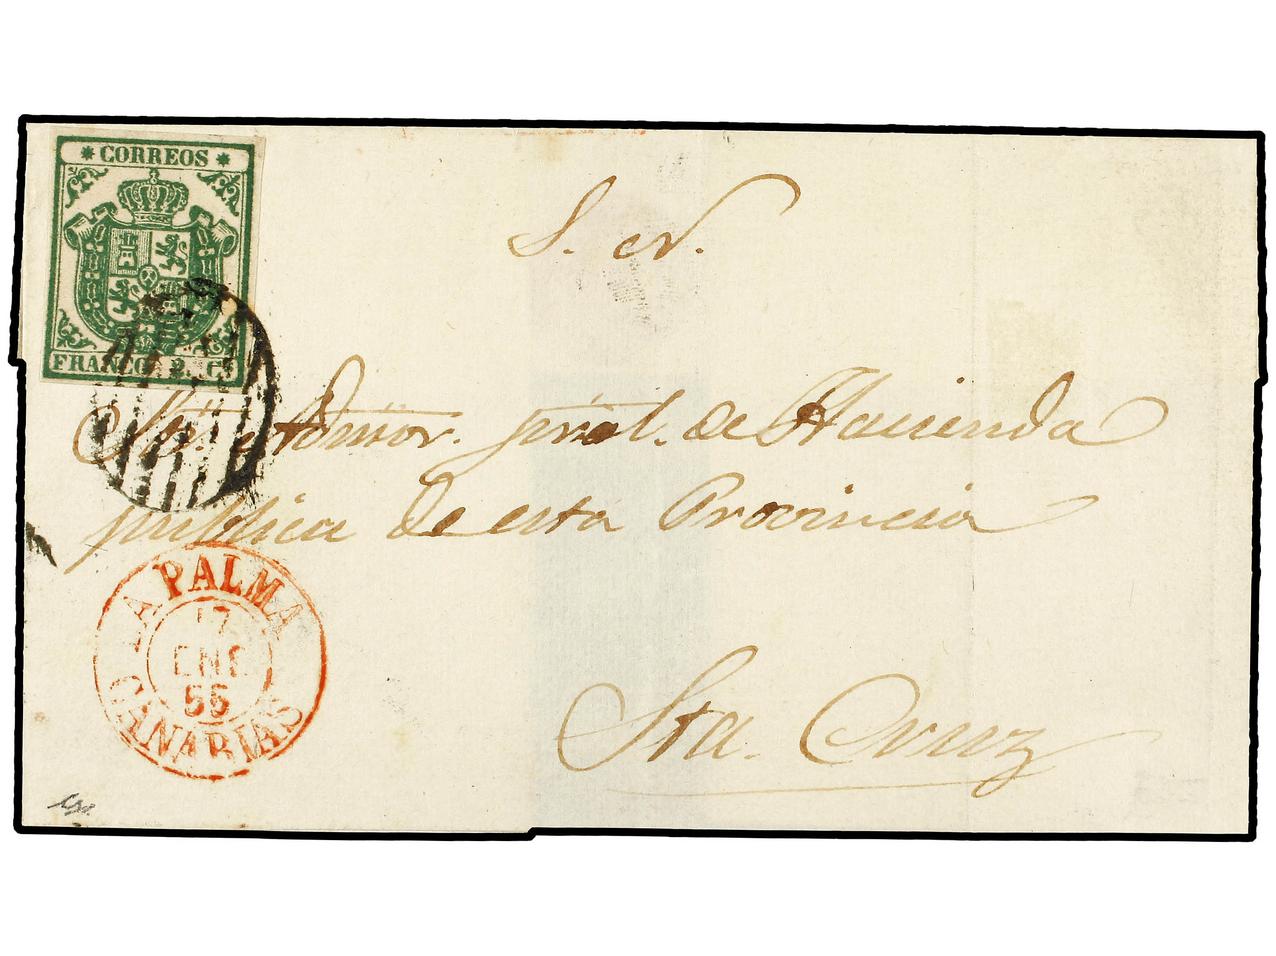 * CORREOS *
FRANCO. 2. Cs
S. N.
Sor. Admor. gral. de Hacienda
publica de esta Provincia
LA PALMA
17
ENE
55
CANARIAS
Sta. Cruz